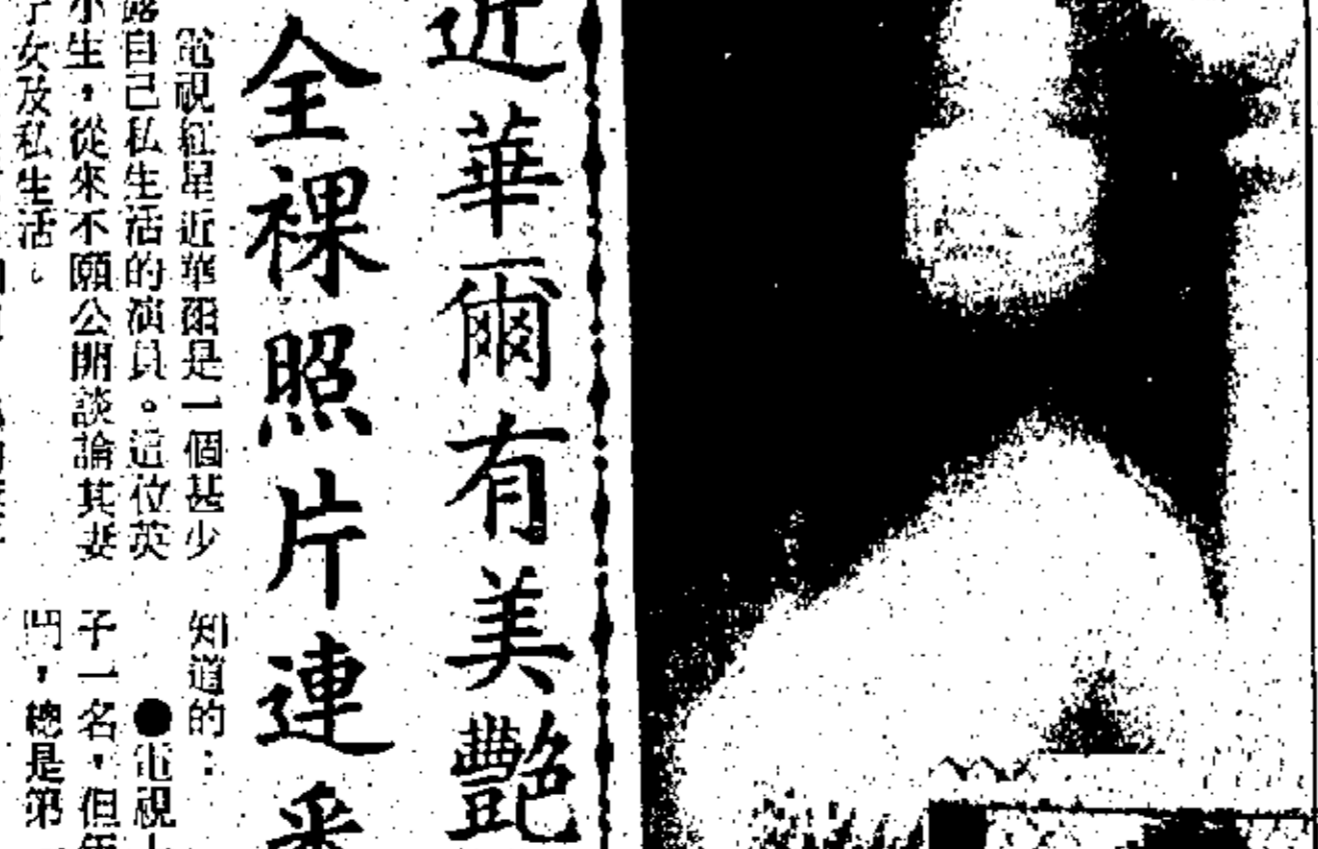 近華爾有美艷
全裸照片連番
電視紅星近華爾是一個甚少
露自己私生活的演員。這位英
小生，從來不願公開談論其妻
子女及私生活。
知道的：
●電視
子一名，但
鬥，總是第